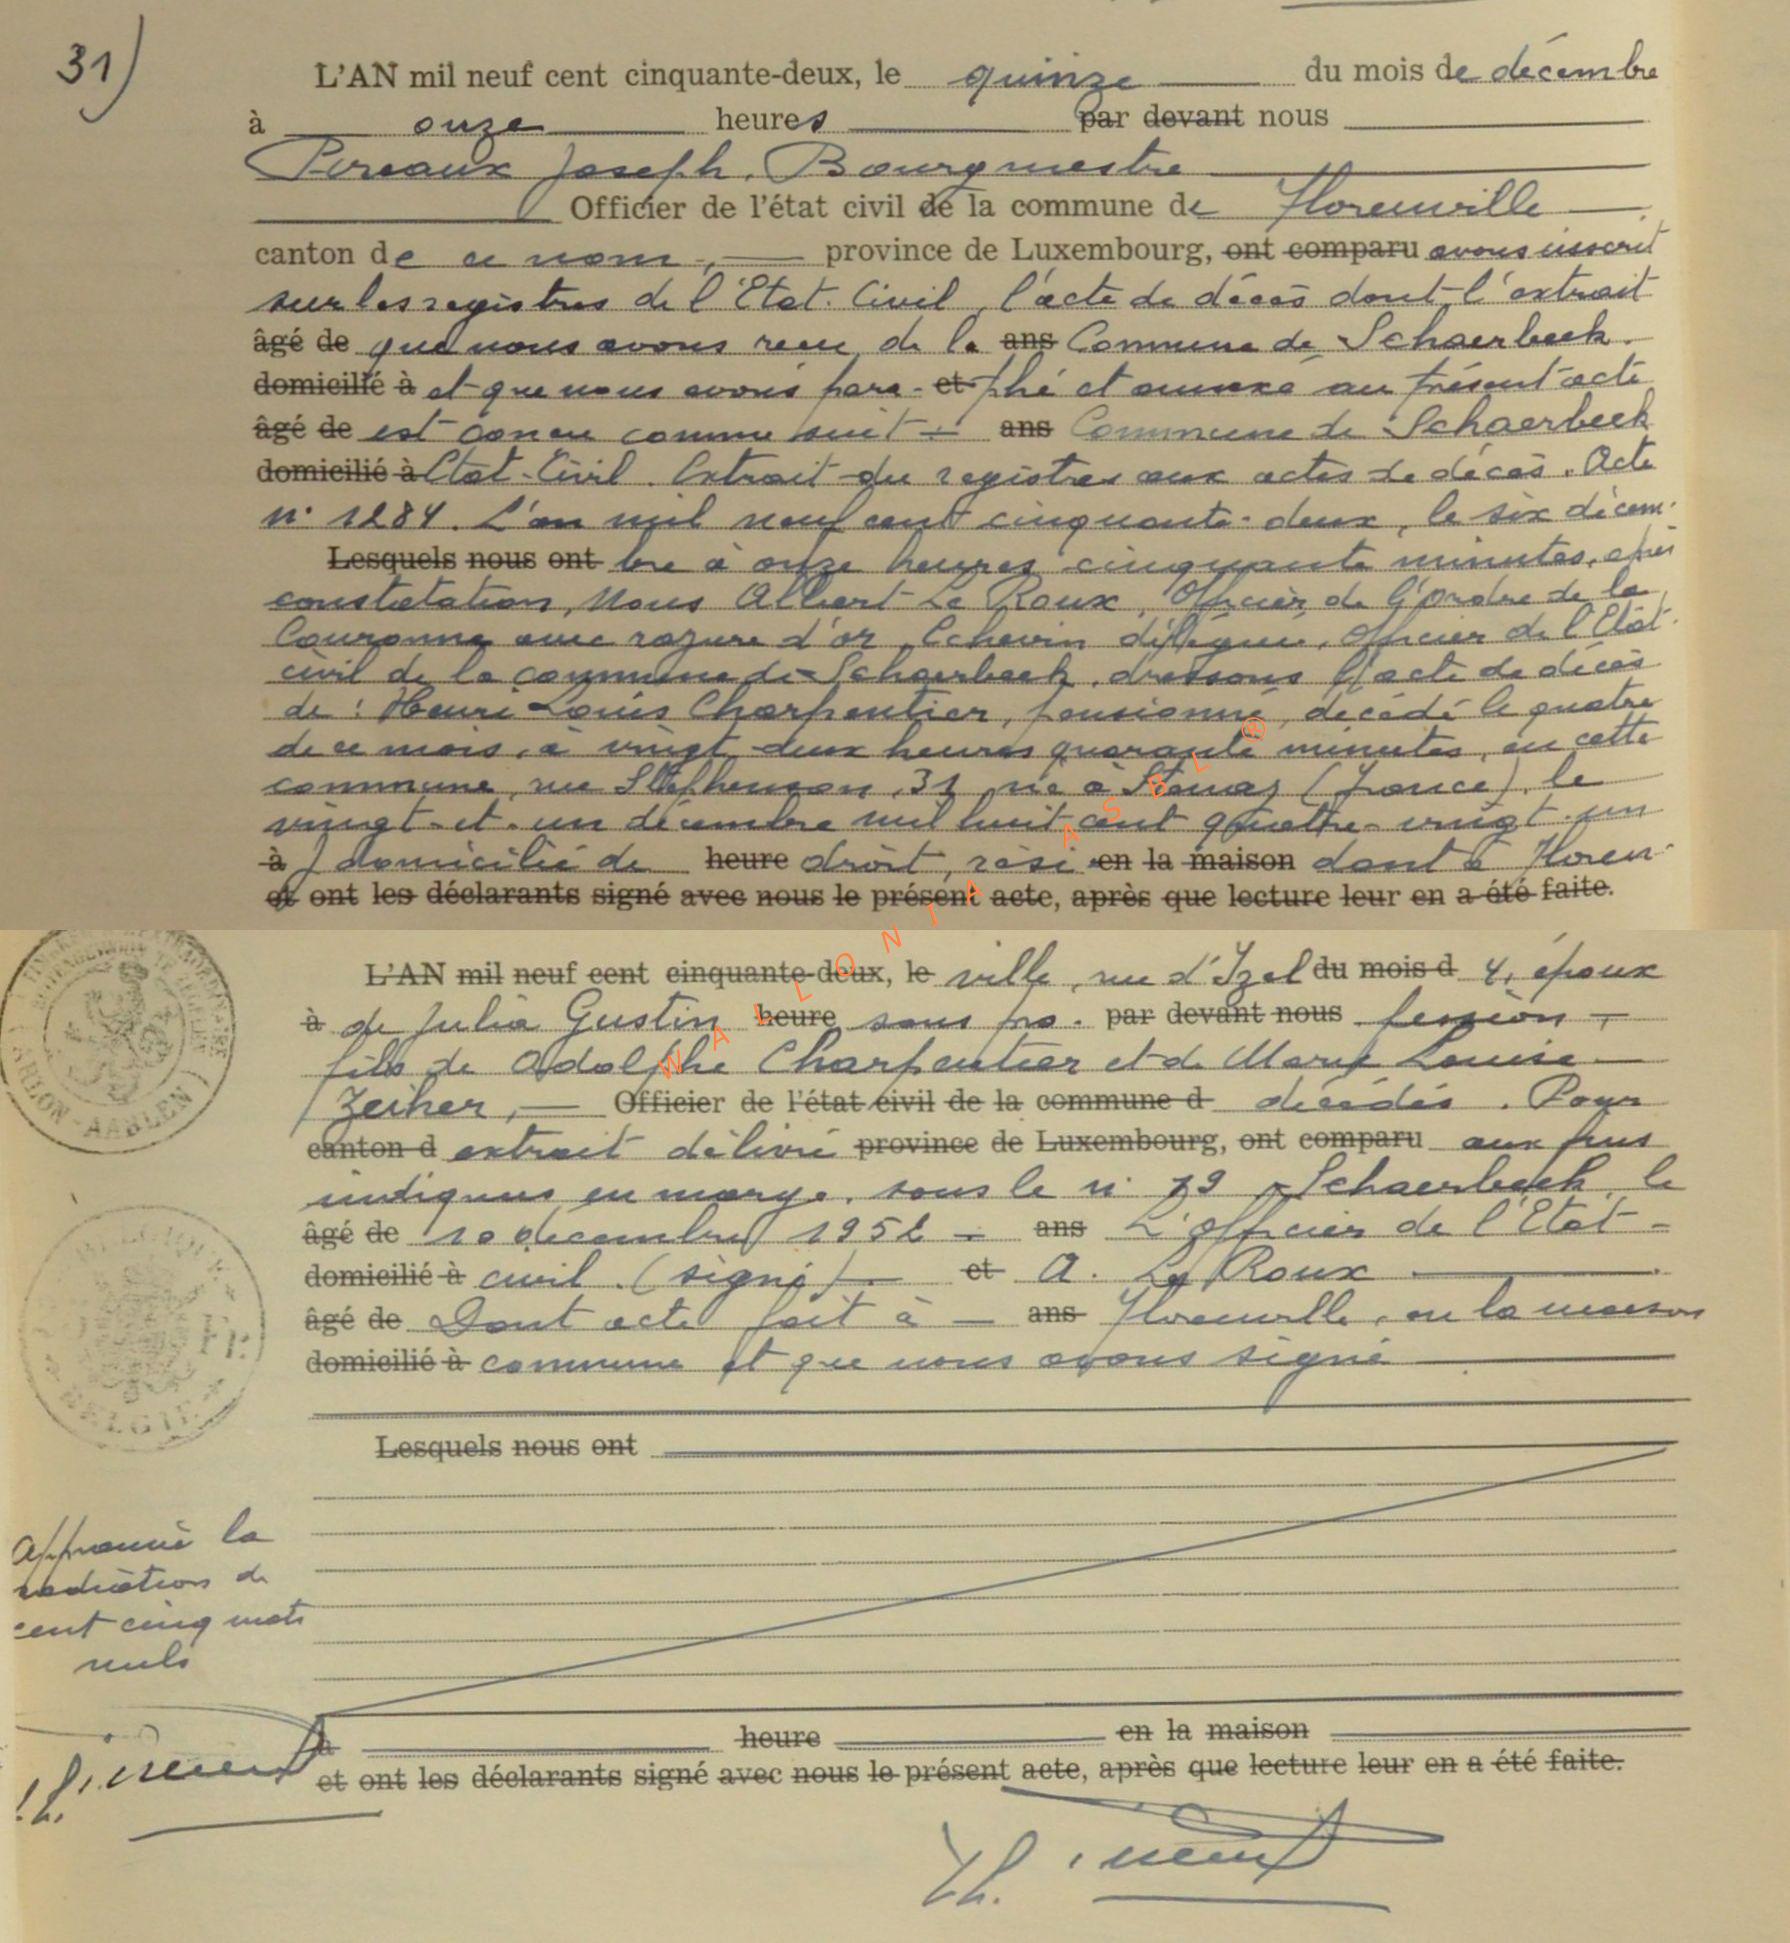 31)
L'AN mil neuf cent cinquante-deux, le quinze du mois de décembre
à onze heures par devant nous
Pireaux Joseph, Bourgmestre
Officier de l'état civil de la commune de Florenville
canton de ce nom, province de Luxembourg, ont comparu avons inscrit
sur les registres de l'Etat-Civil, l'acte de décès dont l'extrait
âgé de que nous avons reçu de la ans Commune de Schaerbeek
domicilié à et que nous avons para- et phé et annexé au présent acte
âgé de est conçu comme suit ans Commune de Schaerbeek
domicilié à Etat-Civil. Extrait du registre aux actes de décès. Acte
n° 1284. L'an mil neuf cent cinquante-deux, le six décem-
Lesquels nous ont bre à onze heures cinquante minutes, après
constatation, Nous Albert Le Roux, Officier de l'Ordre de la
Couronne avec rayure d'or, Echevin délégué, officier de l'Etat-
civil de la commune de Schaerbeek, dressons l'acte de décès
de : Henri Louis Charpentier, pensionné, décédé le quatre
de ce mois, à vingt-deux heures quarante minutes, en cette
commune, rue Stephenson, 31, né à (France), le
vingt-et-un décembre mil huit cent quatre-vingt-un
à domicilié de heure droit, rési- en la maison dant à Floren-
et ont les déclarants signé avec nous le présent acte, après que lecture leur en a été faite.
L'AN mil neuf cent cinquante-deux, le ville, rue d'Izel du mois d 4, époux
à de Julia Gustin heure sans pro- par devant nous fession
fils de Adolphe Charpentier et de Marie Louise
Zeiher, Officier de l'état civil de la commune d décédés. Pour
canton d extrait délivré province de Luxembourg, ont comparu aux fins
indiquées en marge, sous le n° 79 Schaerbeek, le
âgé de 10 décembre 1952 ans L'officier de l'Etat-
domicilié à civil. (signé) et A. Le Roux
âgé de Dont acte fait à ans Florenville, en la maison
domicilié à commune et que nous avons signé
Lesquels nous ont
Approuvé la
radiation de
cent cinq mots
nuls
à heure en la maison
et ont les déclarants signé avec nous le présent acte, après que lecture leur en a été faite.
ARLON - AARLEN
BELGIQUE
BELGIË
WALLONIA ASBL ®